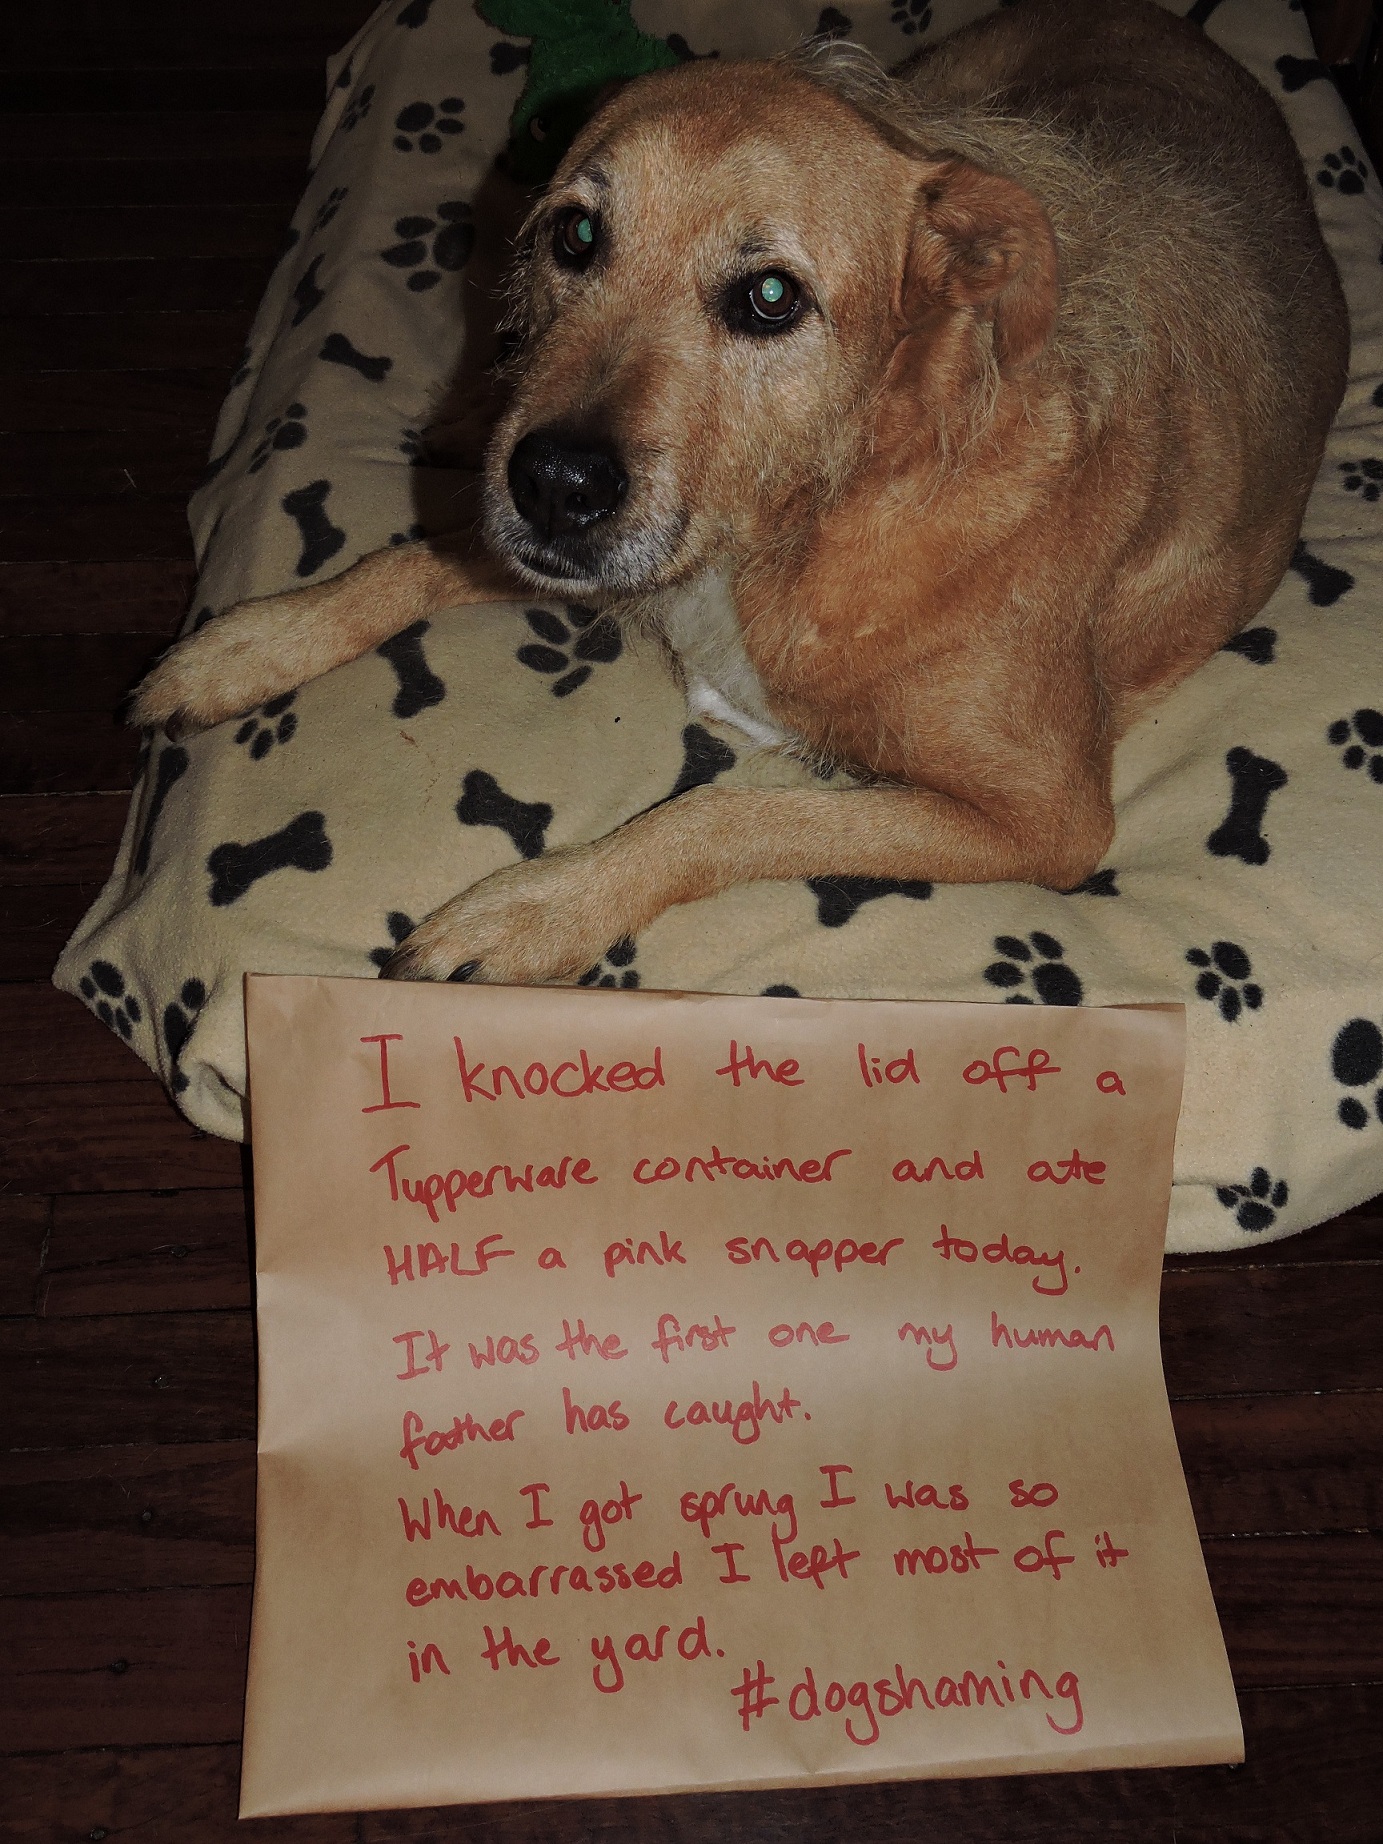 I knocked the lid off a
Tupperware container and ate
HALF a pink snapper today.
It was the first one my human
father has caught.
When I got sprung I was so
embarrassed I left most of it
in the yard.
#dogshaming